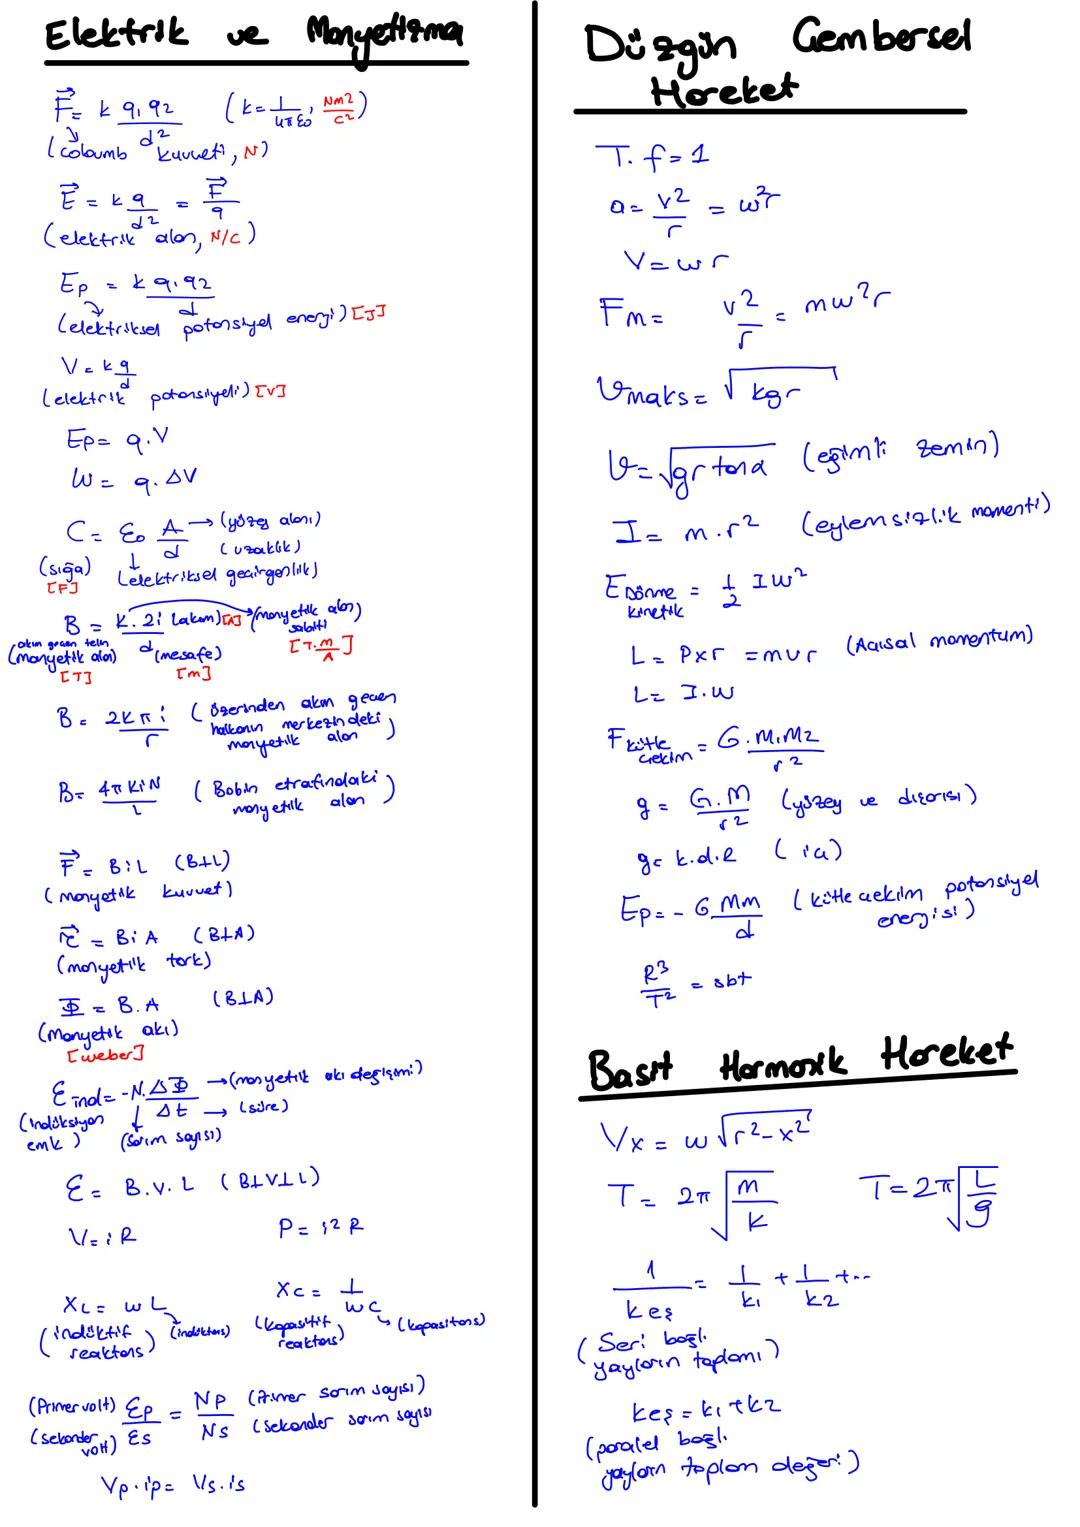 Elektrik ve Manyetizma
F⃗ = k q₁q₂/d² (k = 1/4πε₀, Nm²/C²)
(coloumb kuvveti, N)
E⃗ = k q/d² = F⃗/q
(elektrik alan, N/C)
Ep = k q₁.q₂/d
(elektriksel potansiyel enerji) [J]
V = k q/d
(elektrik potansiyeli) [V]
Ep = q.V
W = q.ΔV
C = ε₀ A/d → (yüzey alanı)
(uzaklık)
(sığa) (elektriksel geçirgenlik)
[F]
B = k.2i/d (akım)[A] (manyetik alan sabiti)
[T.m/A]
(akım geçen telin manyetik alanı) (mesafe)
[T] [m]
B = 2kπi/r (üzerinden akım geçen
halkanın merkezindeki
manyetik alan)
B = 4πkiN/L (Bobin etrafındaki
manyetik alan)
F⃗ = BiL (B⊥L)
(manyetik kuvvet)
τ⃗ = BiA (B⊥A)
(manyetik tork)
Φ = B.A (B⊥A)
(Manyetik akı)
[weber]
ε ind = -N.ΔΦ/Δt → (manyetik akı değişimi)
→ (süre)
(indüksiyon
emk) (Sarım sayısı)
ε = B.v.L (B⊥V⊥L)
V = iR P = i²R
XL = wL XC = 1/wC
(indüktif reaktans) (indüktans) (kapasitif reaktans) (kapasitans)
(Primer volt) εp/εs = Np/Ns (Primer sarım sayısı)
(sekonder volt) (sekonder sarım sayısı
Vp.ip = Vs.is
Düzgün Çembersel
Hareket
T. f = 1
a = v²/r = w²r
V = wr
Fm = v²/r = mw²r
Vmaks = √kgr
V = √gr tanα (eğimli zemin)
I = m.r² (eylemsizlik momenti)
E Dönme kinetik = 1/2 Iw²
L = Pxr = mvr (Açısal momentum)
L = I.w
F kütle çekim = G.M₁M₂/r²
g = G.M/r² (yüzey ve dışarısı)
g = k.d.R (içi)
Ep = - G Mm/d (kütle çekim potansiyel
enerjisi)
R³/T² = sbt
Basit Harmonik Hareket
Vx = w√r²-x²
T = 2π√m/k T = 2π√L/g
1/keş = 1/k₁ + 1/k₂ +...
(Seri bağlı
yayların toplamı)
keş = k₁+k₂
(paralel bağlı
yayların toplam değeri)